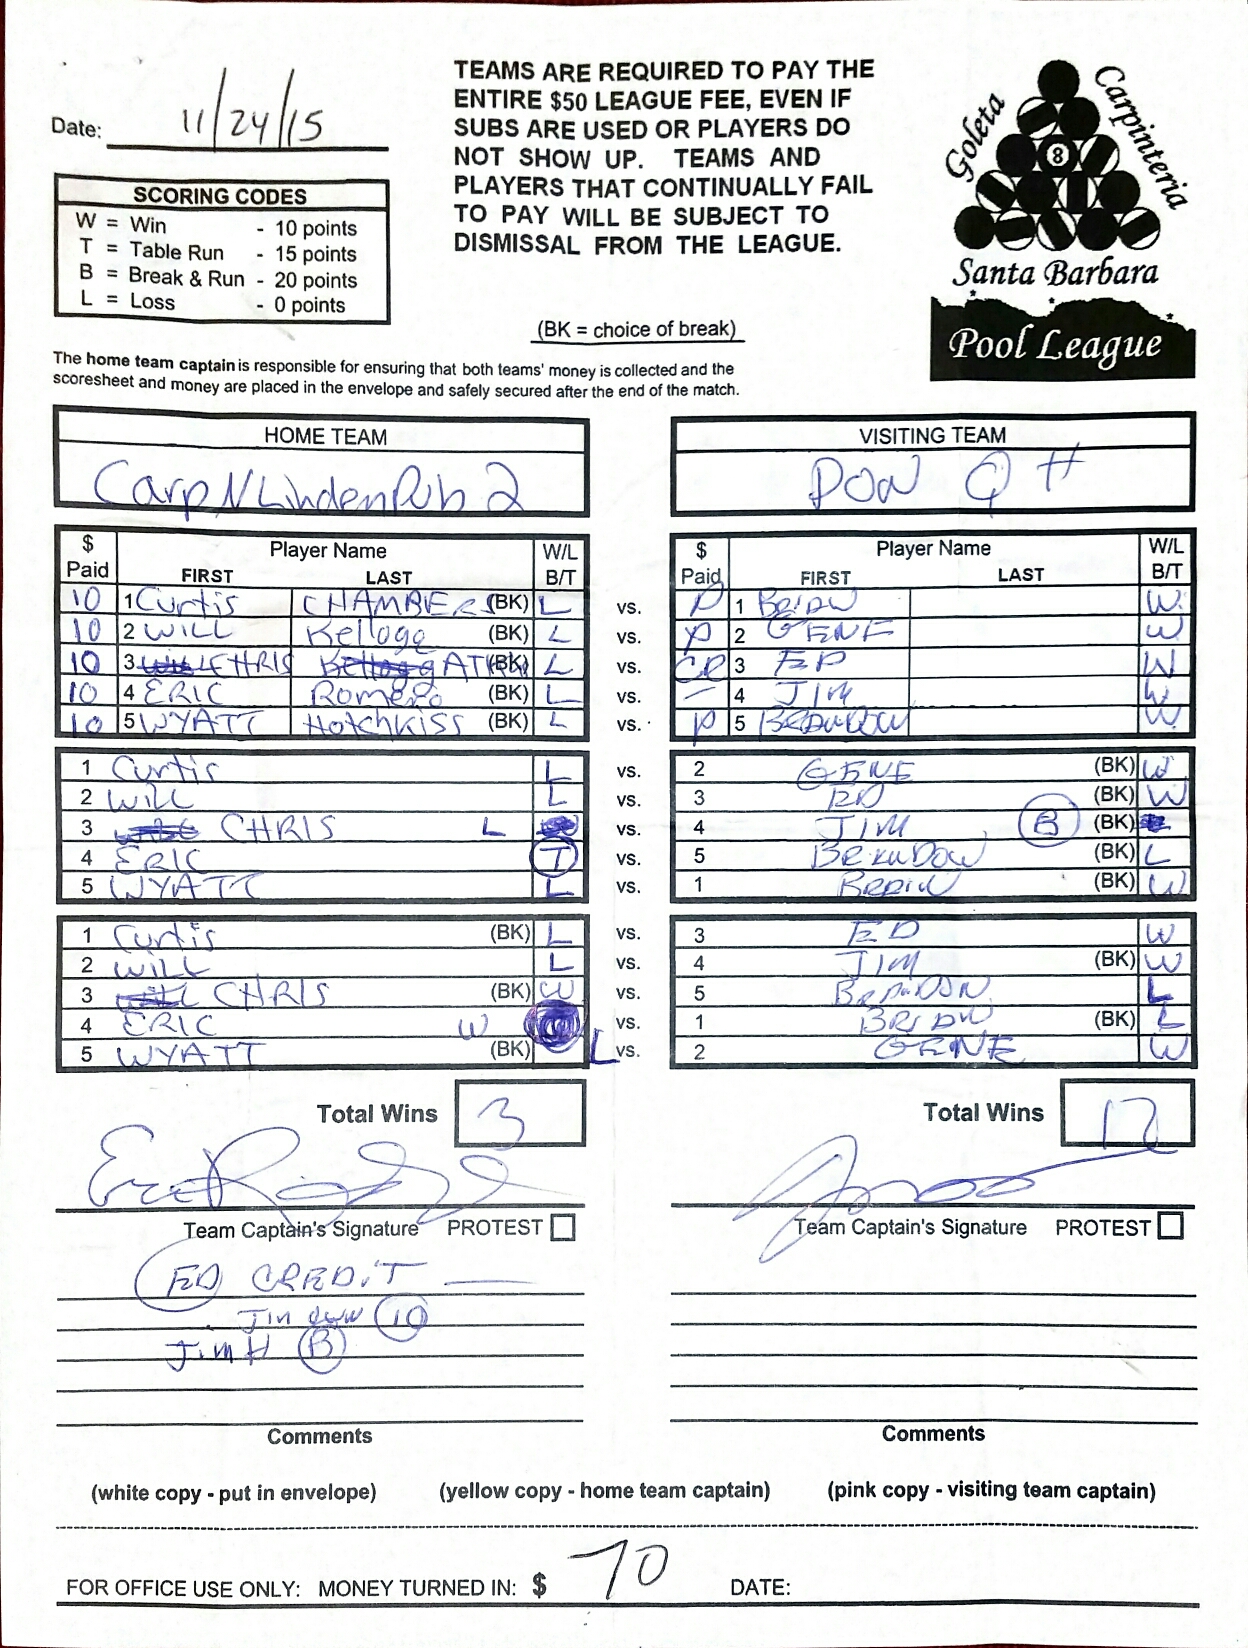 Date: 11/24/15
TEAMS ARE REQUIRED TO PAY THE
ENTIRE $50 LEAGUE FEE, EVEN IF
SUBS ARE USED OR PLAYERS DO
NOT SHOW UP. TEAMS AND
PLAYERS THAT CONTINUALLY FAIL
TO PAY WILL BE SUBJECT TO
DISMISSAL FROM THE LEAGUE.
Goleta
Carpinteria
8
Santa Barbara
Pool League
SCORING CODES
W = Win - 10 points
T = Table Run - 15 points
B = Break & Run - 20 points
L = Loss - 0 points
(BK = choice of break)
The home team captain is responsible for ensuring that both teams' money is collected and the
scoresheet and money are placed in the envelope and safely secured after the end of the match.
HOME TEAM VISITING TEAM
Carp N Linden Pub 2 DON Q H
$ Paid Player Name FIRST LAST W/L B/T $ Paid Player Name FIRST LAST W/L B/T
10 1 Curtis CHAMBERS (BK) L vs. P 1 BRIAN W
10 2 WILL Kellogg (BK) L vs. P 2 GENE W
10 3 CHRIS (BK) L vs. CR 3 ED W
10 4 ERIC Romero (BK) L vs. — 4 JIM W
10 5 WYATT HOtchKISS (BK) L vs. P 5 W
1 Curtis L vs. 2 GENE (BK) W
2 WILL L vs. 3 ED (BK) W
3 CHRIS L vs. 4 JIM B (BK)
4 ERIC T vs. 5 (BK) L
5 WYATT L vs. 1 BRIAN (BK) W
1 Curtis (BK) L vs. 3 ED W
2 WILL L vs. 4 JIM (BK) W
3 CHRIS (BK) W vs. 5 L
4 ERIC W vs. 1 BRIAN (BK) L
5 WYATT (BK) L vs. 2 GENE W
Total Wins 3 Total Wins 12
Team Captain's Signature PROTEST Team Captain's Signature PROTEST
ED CREDIT
Jim 10
Jim H B
Comments Comments
(white copy - put in envelope) (yellow copy - home team captain) (pink copy - visiting team captain)
FOR OFFICE USE ONLY: MONEY TURNED IN: $ 70 DATE: